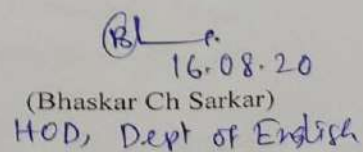 16.08.20
(Bhaskar Ch Sarkar)
HOD, Dept of English